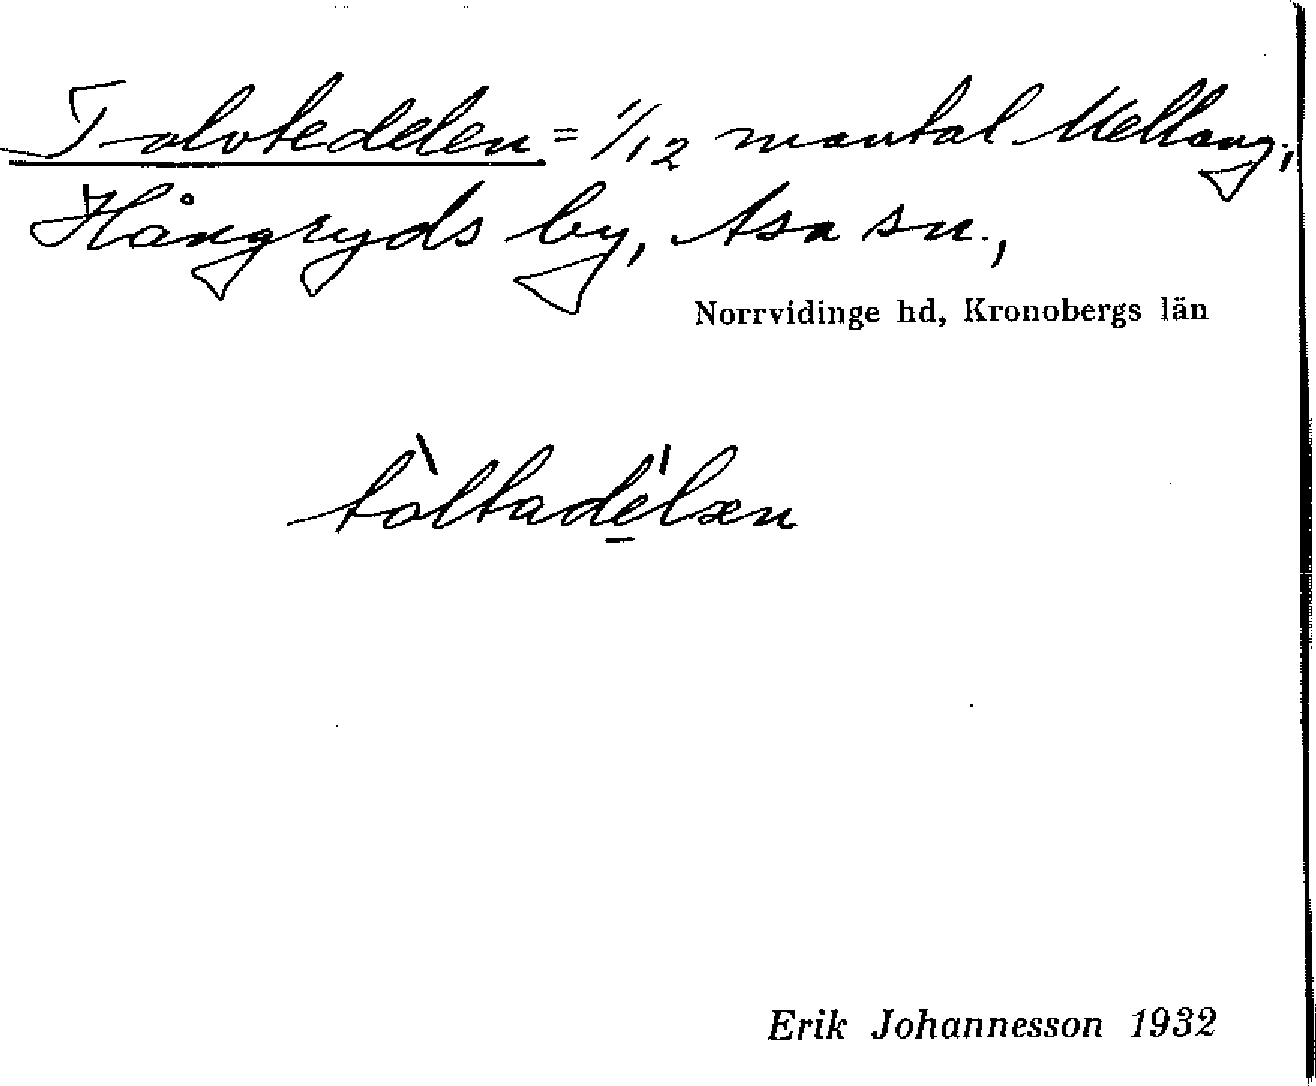 Tolvtedelen = 1/12 mantal Mellang,
Hångryds by, Asa sn.,
Norrvidinge hd, Kronobergs län
tòltadé̱læn
Erik Johannesson 1932